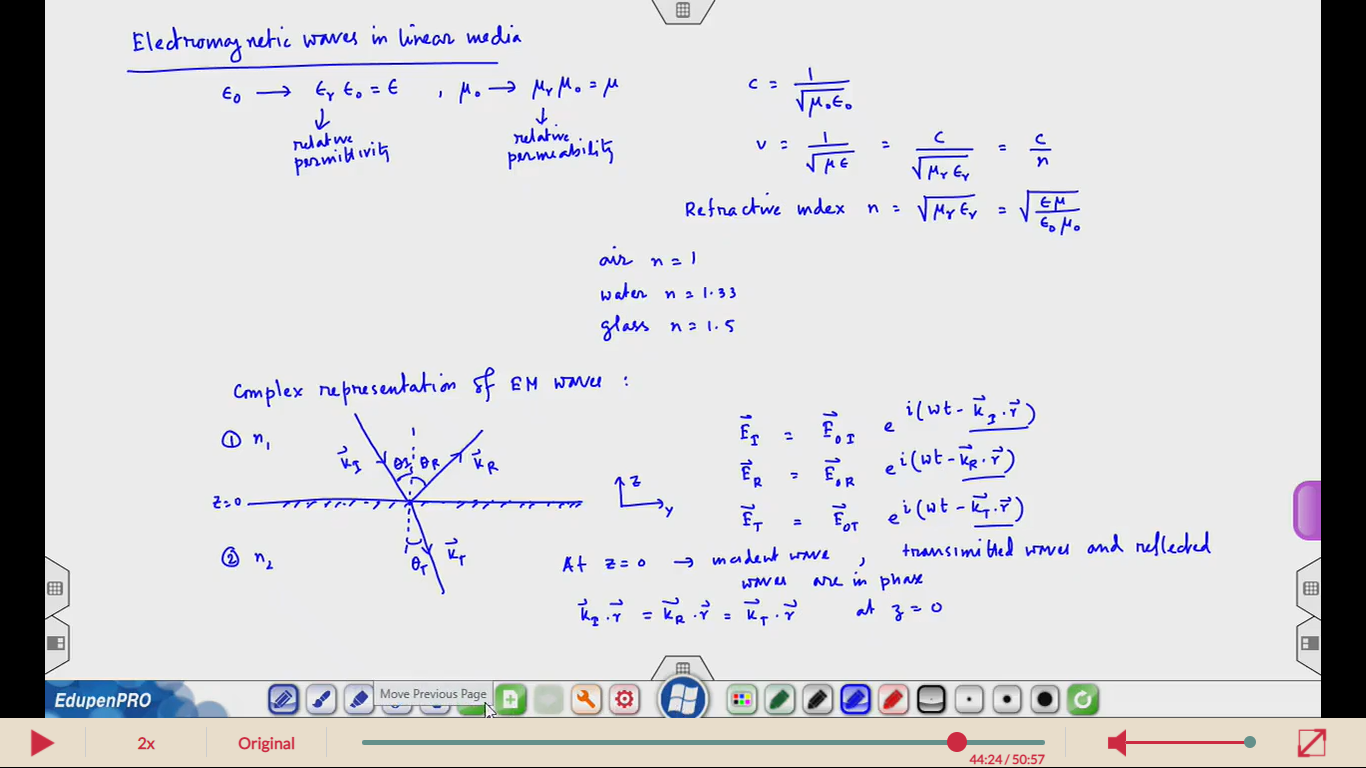 Electromagnetic waves in linear media
ϵ₀ → ϵᵣ ϵ₀ = ϵ , μ₀ → μᵣ μ₀ = μ
↓ relative permittivity
↓ relative permeability
c = 1/√(μ₀ϵ₀)
v = 1/√(μϵ) = c/√(μᵣϵᵣ) = c/n
Refractive index n = √(μᵣϵᵣ) = √(ϵμ/ϵ₀μ₀)
air n = 1
water n = 1.33
glass n = 1.5
Complex representation of EM waves :
① n₁
k⃗_I θ_I θ_R k⃗_R
z=0
② n₂
θ_T k⃗_T
z
y
E⃗_I = E⃗_oI e^i(wt - k⃗_I · r⃗)
E⃗_R = E⃗_oR e^i(wt - k⃗_R · r⃗)
E⃗_T = E⃗_oT e^i(wt - k⃗_T · r⃗)
At z=0 → incident wave , transimitted waves and reflected
waves are in phase
k⃗_I · r⃗ = k⃗_R · r⃗ = k⃗_T · r⃗ at z = 0
EdupenPRO
Move Previous Page
2x
Original
44:24 / 50:57